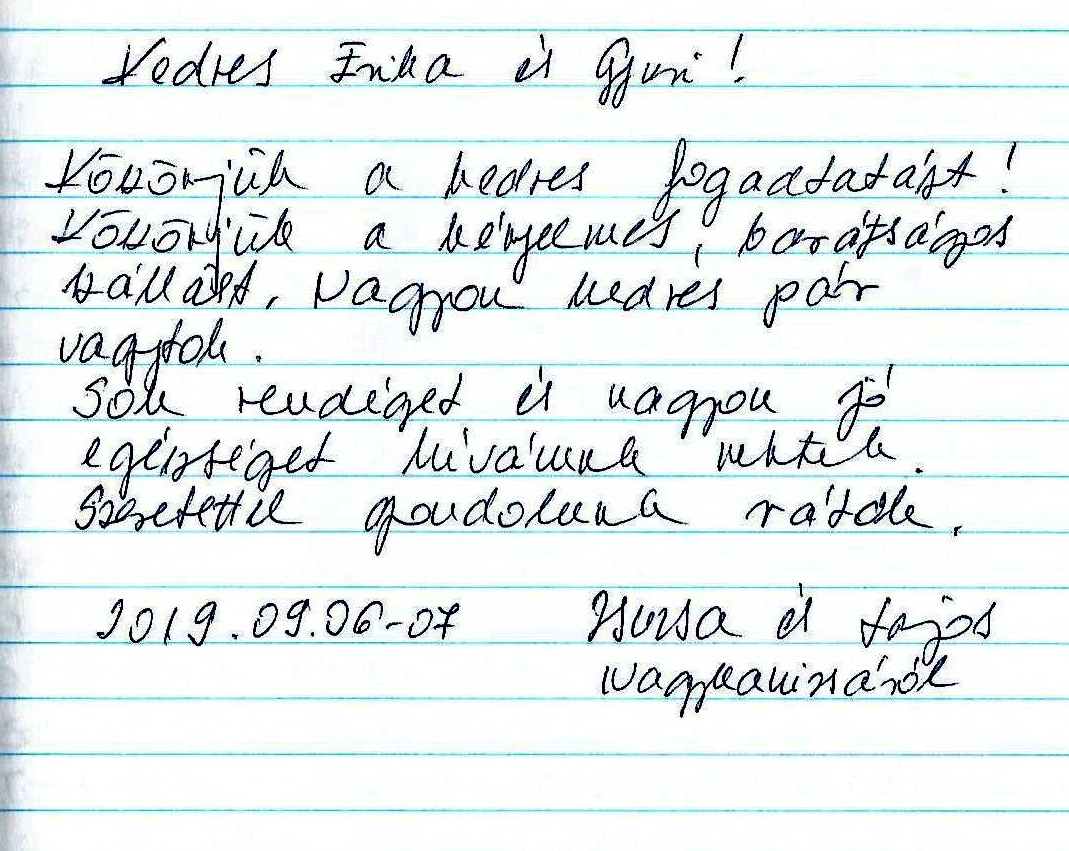 Kedves Erika és Gyuri!
Köszönjük a kedves fogadtatást!
Köszönjük a kényelmes, barátságos
szállást. Nagyon kedves pár
vagytok.
Sok vendéget és nagyon jó
egészséget kívánunk nektek.
Szeretettel gondolunk rátok.
2019.09.06-07 Zsuzsa és Lajos
Nagykanizsáról